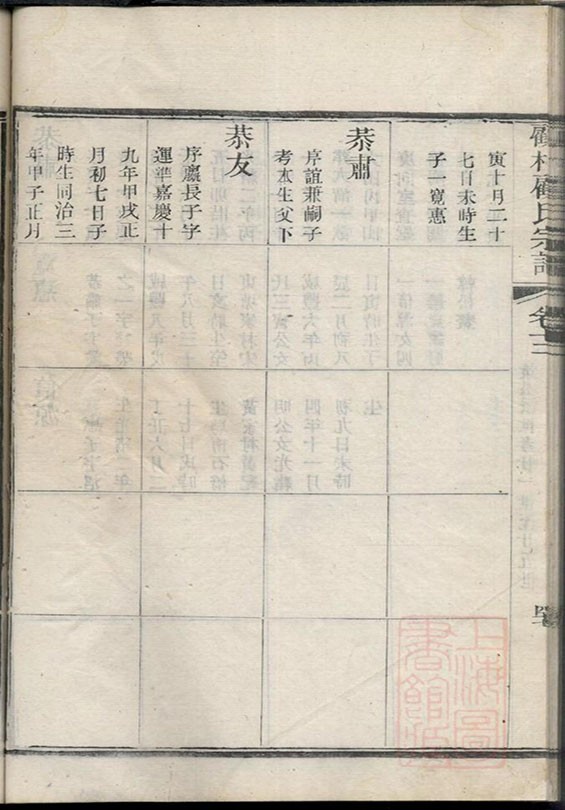 顧村顧氏宗譜
卷十二
寅十月二十
七日未時生
子一寬惠
恭肅
序誼兼嗣子
考本生父下
恭友
序颺長子字
運準嘉慶十
九年甲戌正
月初七日子
時生同治三
年甲子正月
上海圖書館藏